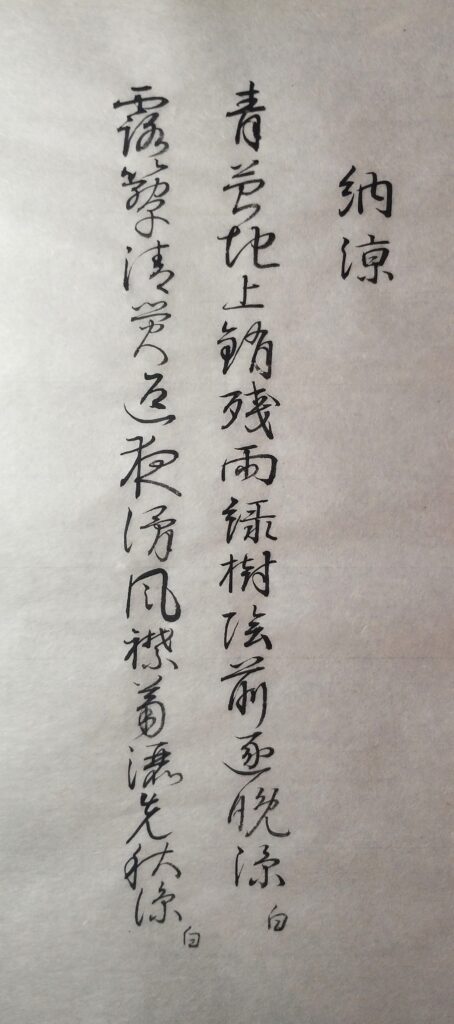 納涼
青苔地上銷残雨緑樹陰前逐晩涼 白
露簟清瑩迎夜滑風襟蕭灑先秋涼 白